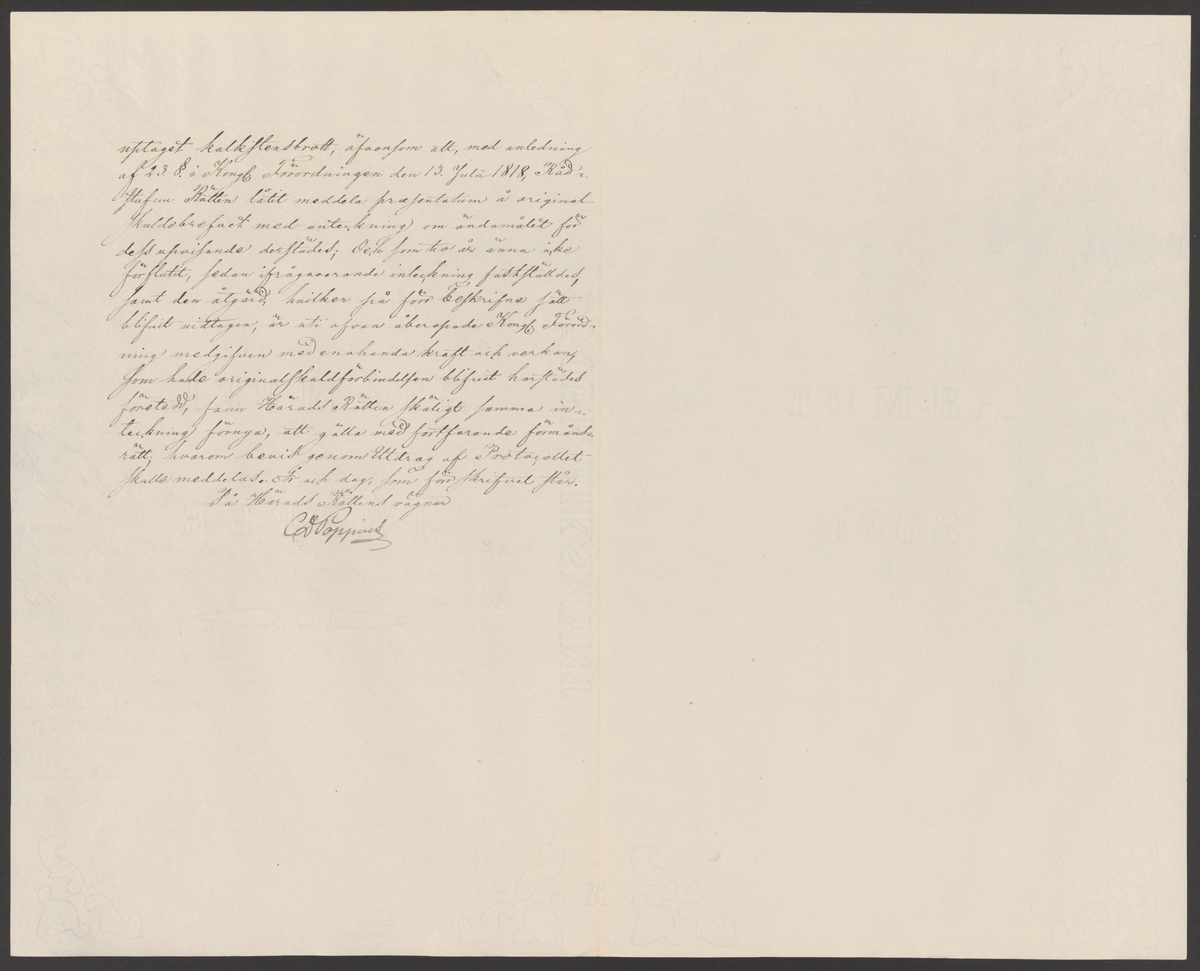 uptaget kalkstensbrott, äfvensom att, med anledning
af 23. §. i Kongl Förordningen den 13. Julii 1818, Råd-
stufvu Rätten låtit meddela præsentatum å original-
skuldebrefvet med anteckning om ändamålet för
dess upvisande derstädes; Och som tio år ännu icke
förflutit, sedan ifrågavarande inteckning fastställdes,
samt den åtgärd, hvilken på förr beskrifne sätt
blifvit vidtagen, är uti ofvan åberopade Kongl Förord-
ning medgifven med enahanda kraft och verkan,
som hade originalskuldförbindelsen blifvit härstädes
företedd, fann Härads Rätten skäligt samma in-
teckning förnya, att gälla med fortfarande förmåns-
rätt; hvarom bevis genom Utdrag af Protocollet
skulle meddelas. År och dag, som förr skrifvet står.
På Härads Rättens vägnar
CD Poppius